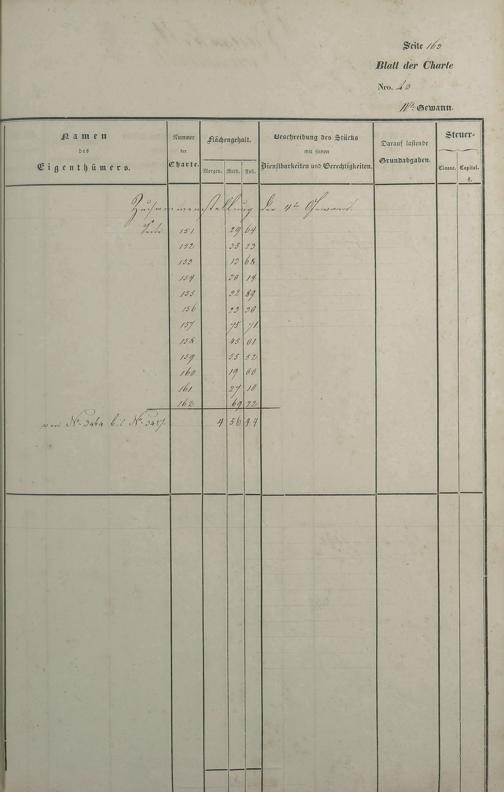 Seite 163
Blatt der Charte
Nro. 43
IVte Gewann.
Namen des Eigenthümers.
Nummer der Charte.
Flächengehalt.
Morgen. Mrth. Fuß.
Beschreibung des Stücks mit seinen Dienstbarkeiten und Gerechtigkeiten.
Darauf lastende Grundabgaben.
Steuer-
Classe. Capital. fl.
Zusammenstellung der 4ten Gewann.
Seite 151 29 64
152 35 23
153 13 68
154 20 14
155 32 89
156 23 30
157 75 71
158 45 61
159 55 52
160 19 60
161 27 10
162 69 22
von No. bis No.
4 56 94